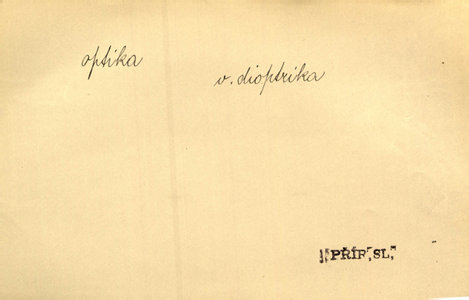 optika
v. dioptrika
PŘÍR, SL,